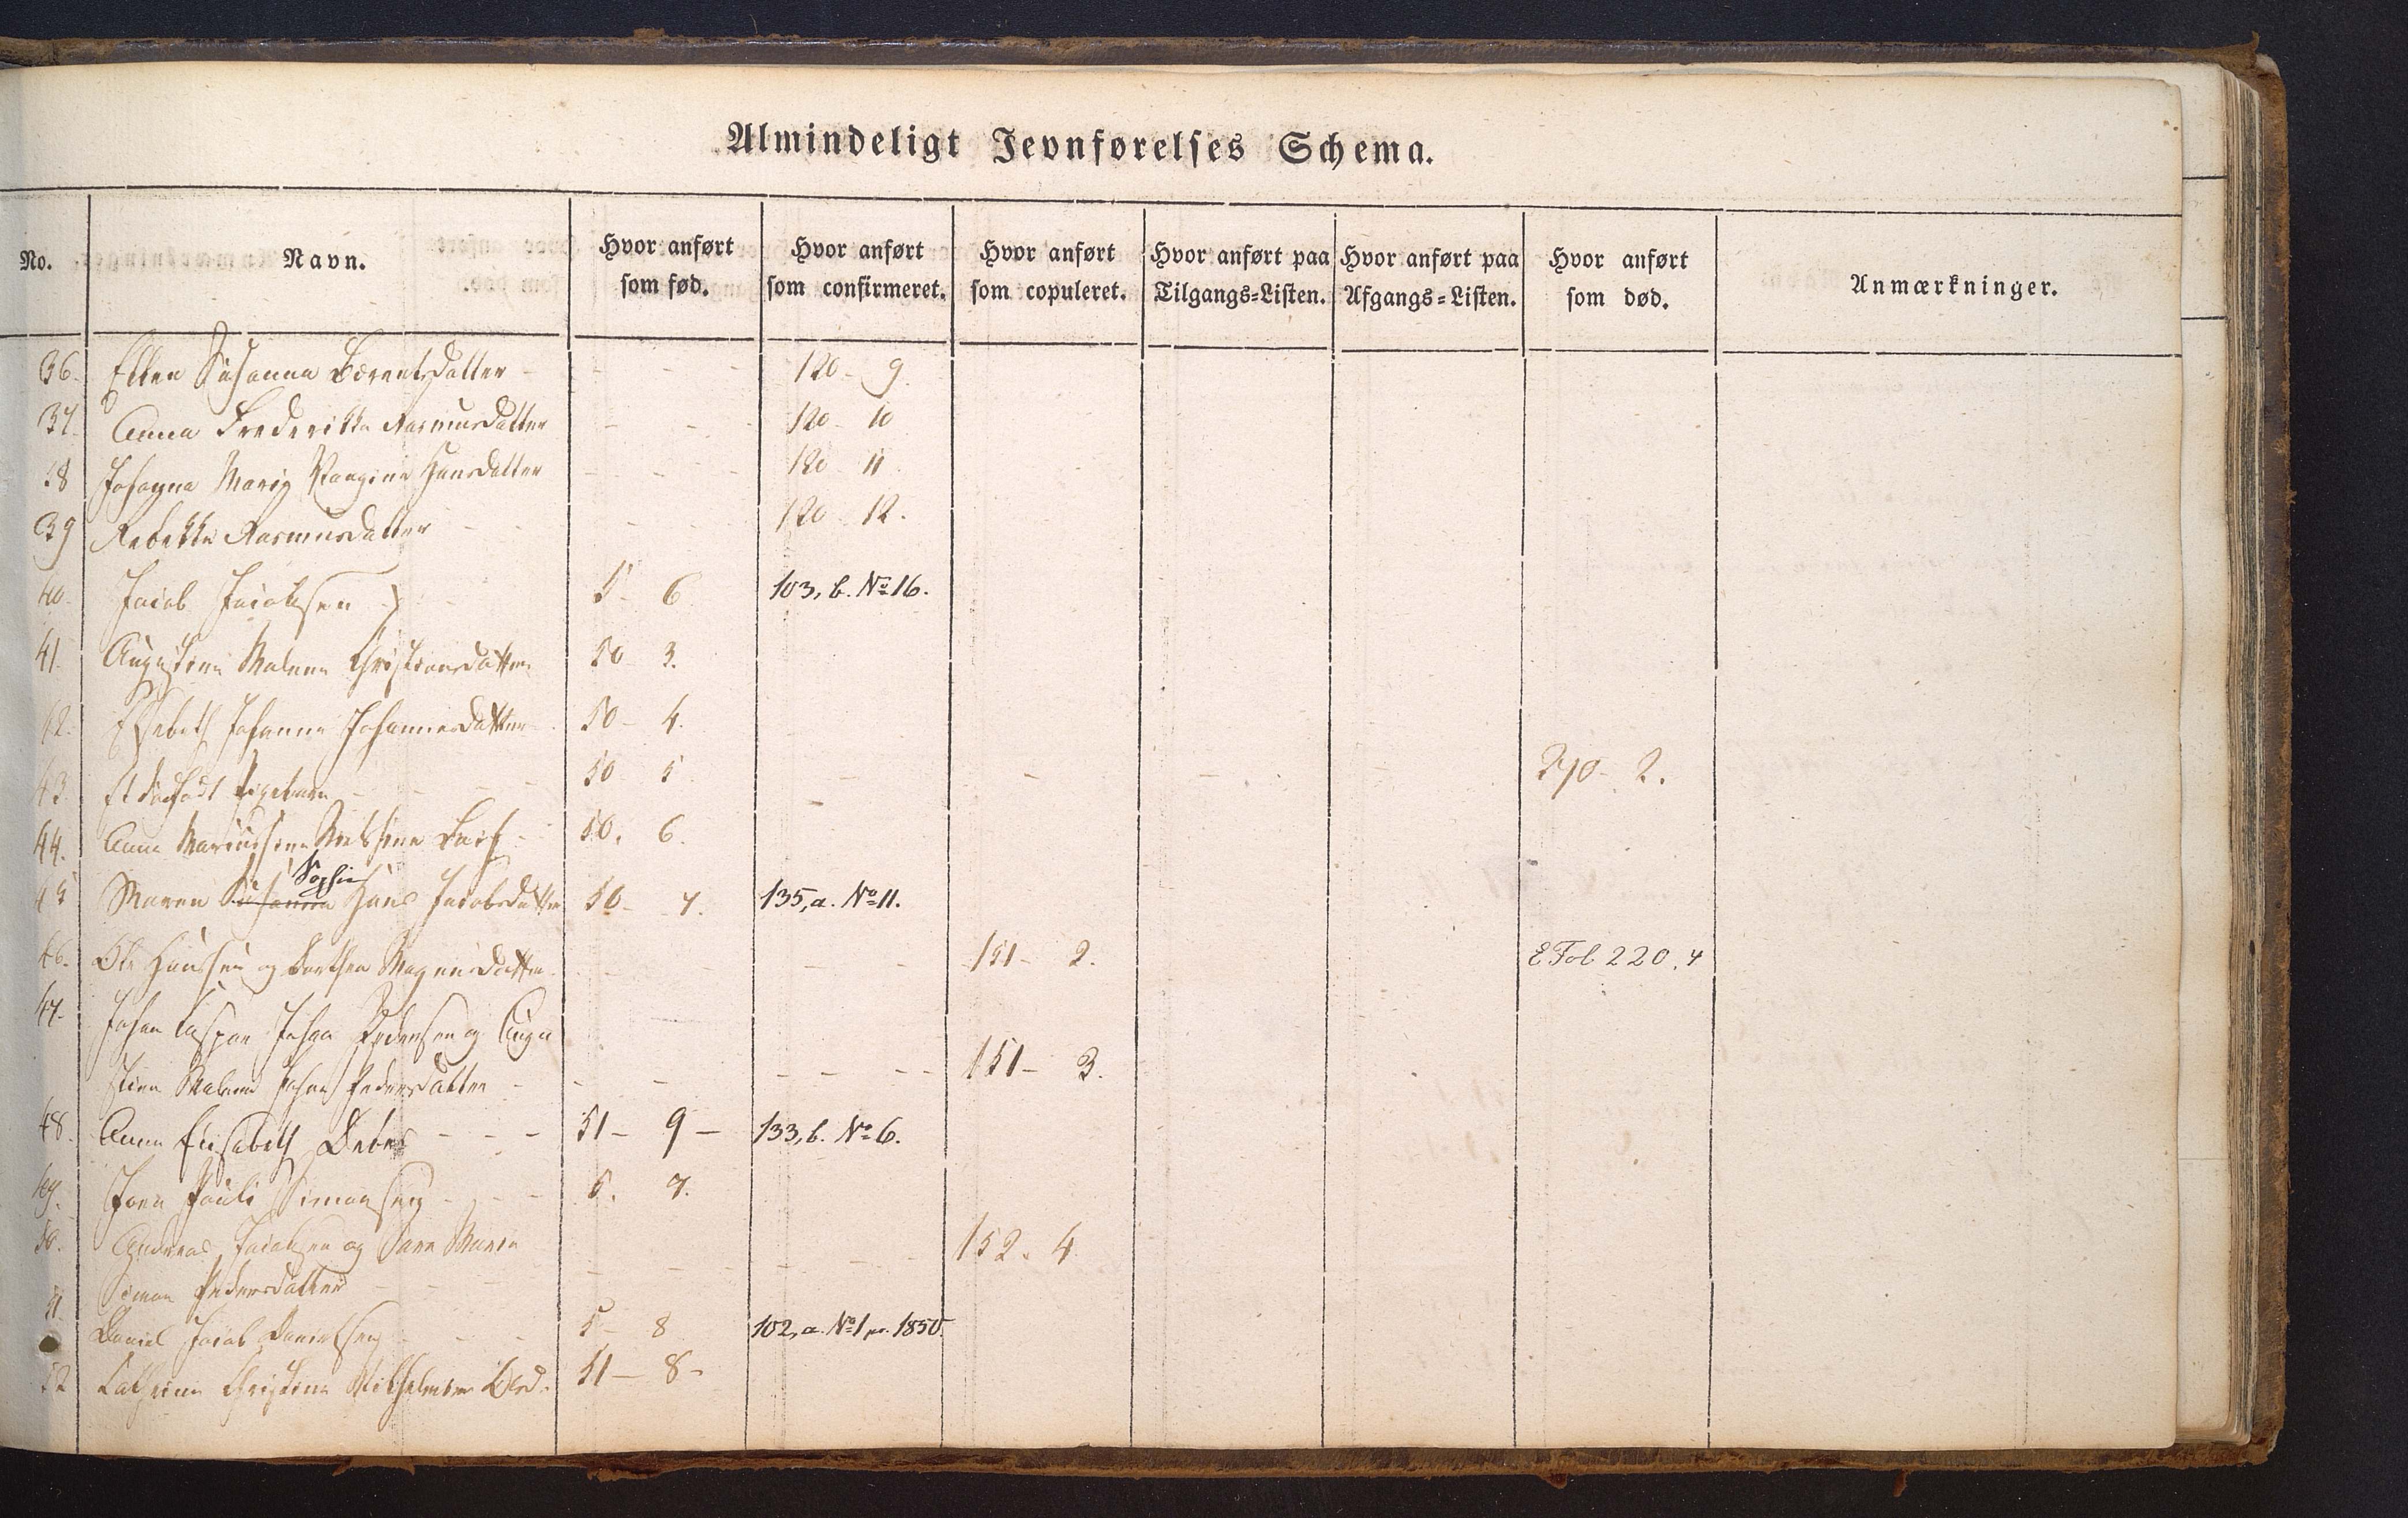 Almindeligt Jevnførelses Schema.
No. Navn. Hvor anført som fød. Hvor anført som confirmeret. Hvor anført som copuleret. Hvor anført paa Tilgangs=Listen. Hvor anført paa Afgangs=Listen. Hvor anført som død. Anmærkninger.
36. Ellen Susanna Berentsdatter - - - 120 - 9.
37. Anna Frederikka Rasmusdatter - - - 120 - 10
38 Johanna Maria Hansdatter - - - 120 - 11.
39 Rebekka Rasmusdatter - - - - 120 - 12.
40. Jacob Jacobsen - - 5 - 6 103, b. No 16.
41. Augustine Malene Christiansdatter 50 3.
42. Elsebeth Johanna Johannesdatter 50 - 4.
43. Et dødfødt Pigebarn - - - 50 5 - - - - 270 - 2.
44. Anna Mariusine - 50. 6.
Sophie
45 Maren Susanna Hans Jacobsdatter 50 - 7. 135, a. No 11.
46. Ole Hansen og Dorthea Magnusdatter - - - - 151 - 2. E Fol 220, 4
47. Johan Caspar Johan Pedersen og Augu
stine Malene Johan Pedersdatter - - - - - - 151 - 3.
48. Anna Elisabeth Debes - - - 51 - 9 - 133, b. No 6.
49. Joen Pauli Simonsen - - - 5. 7.
50. Andreas Jacobsen og Sanna Maria 152. 4
Simon Pedersdatter - - - - - - - -
51. Daniel Jacob Danielsen - - - 5 - 8 102, a. No 1 pr. 1850.
52 Cathrine Christine Wilhelmine 51 - 8 -